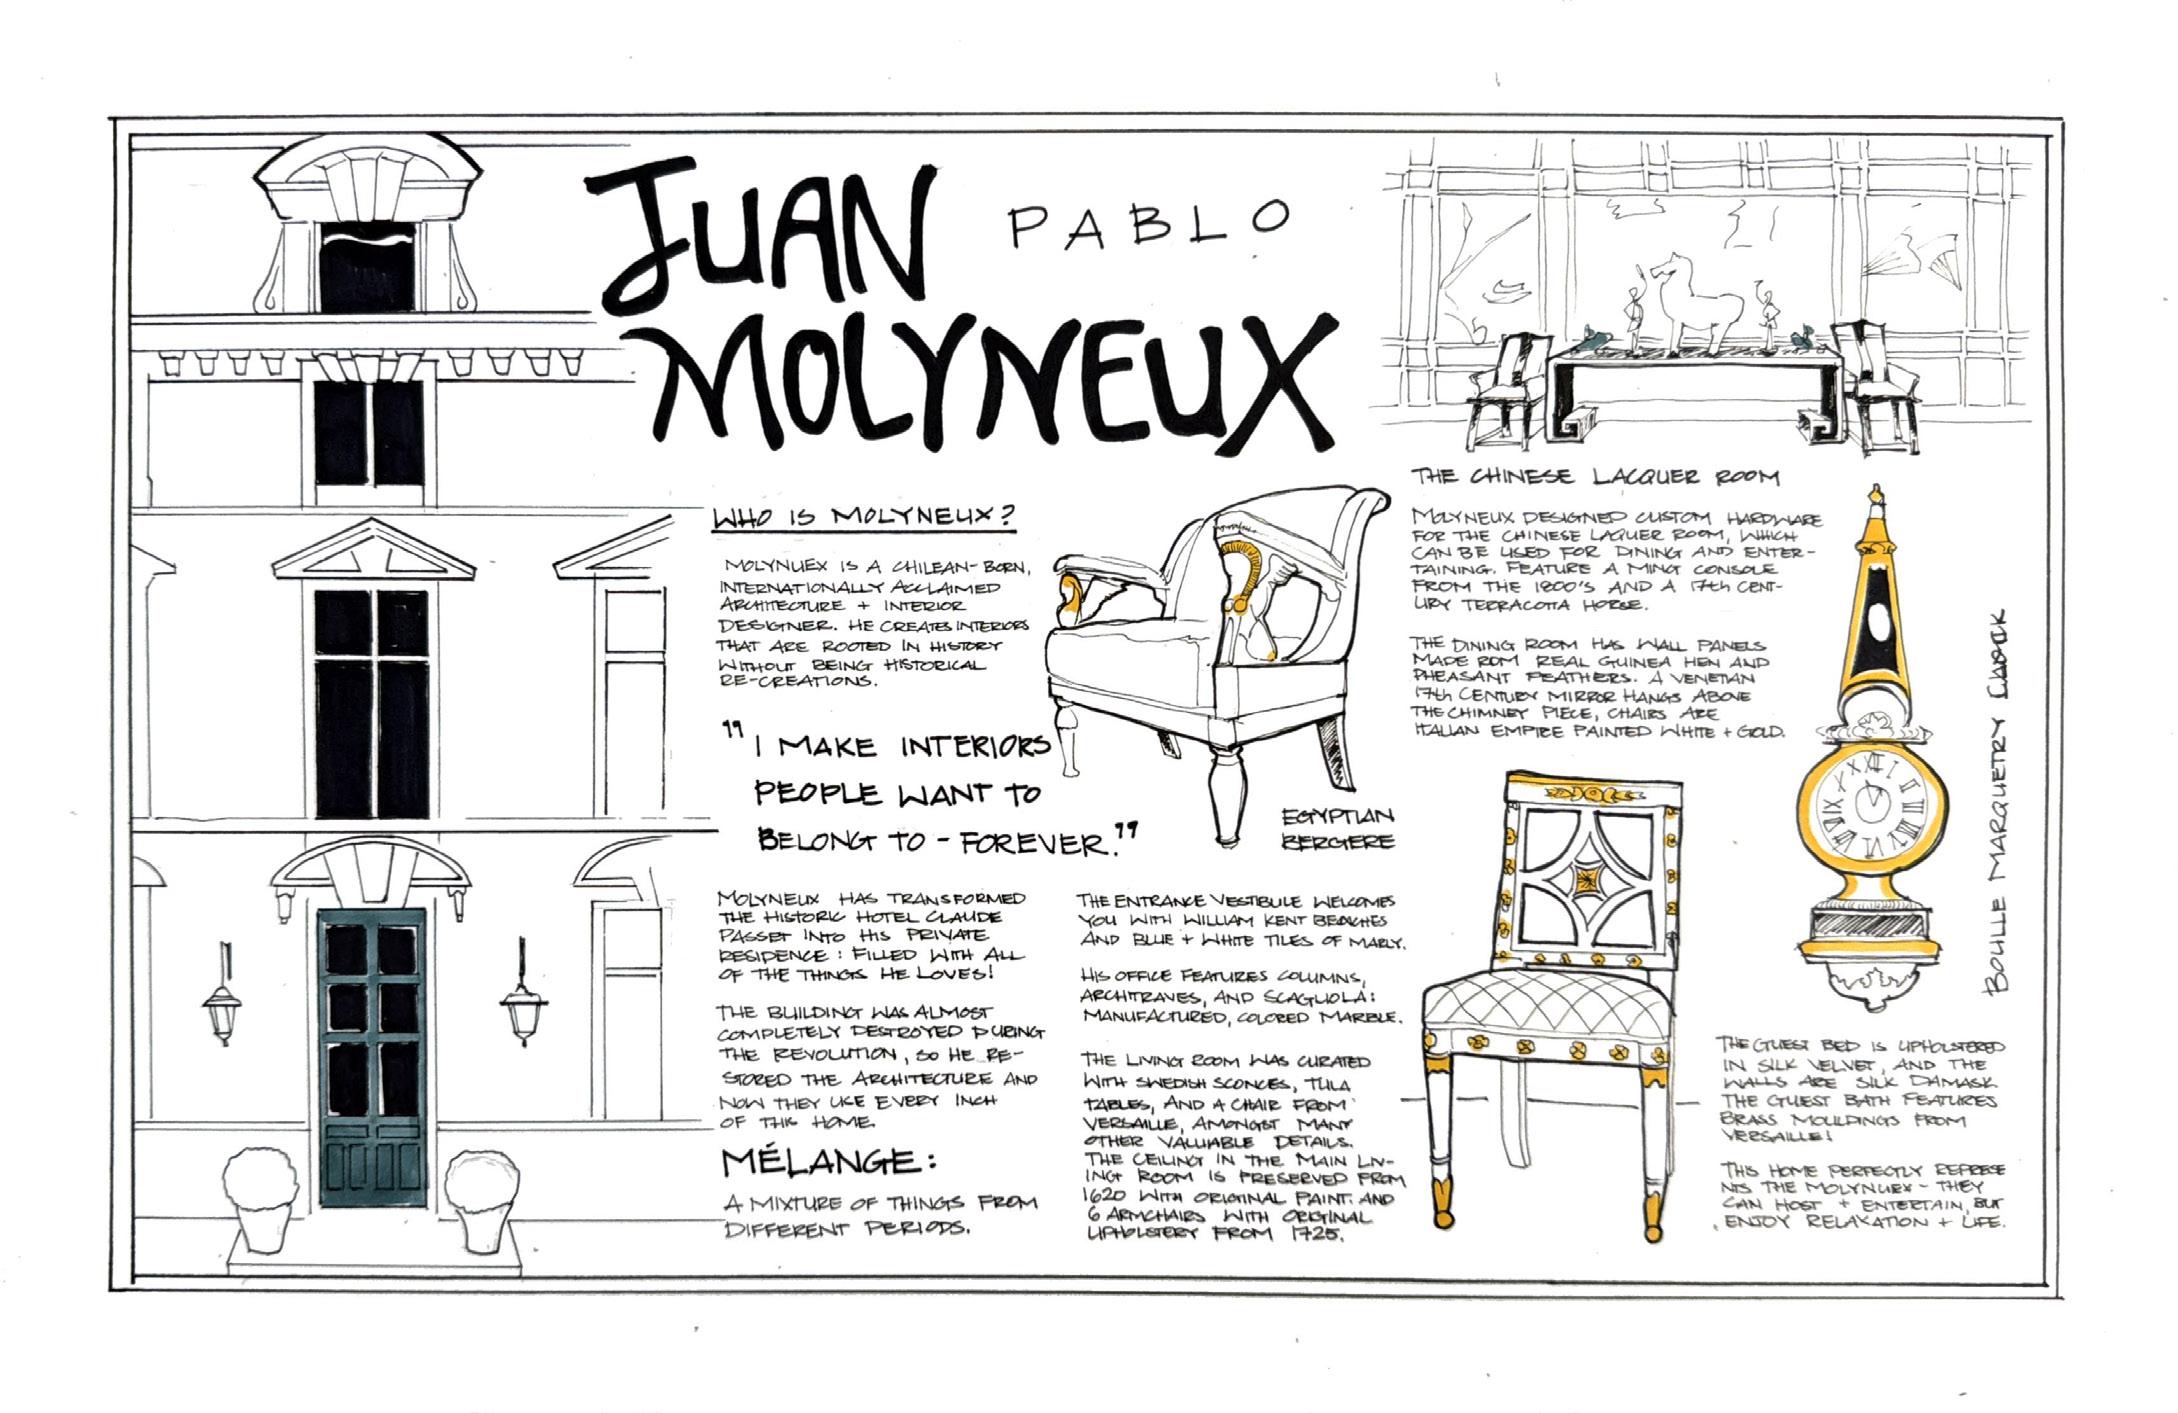 JUAN PABLO
MOLYNEUX
WHO IS MOLYNEUX?
MOLYNUEX IS A CHILEAN-BORN,
INTERNATIONALLY ACCLAIMED
ARCHITECTURE + INTERIOR
DESIGNER. HE CREATES INTERIORS
THAT ARE ROOTED IN HISTORY
WITHOUT BEING HISTORICAL
RE-CREATIONS.
"I MAKE INTERIORS
PEOPLE WANT TO
BELONG TO - FOREVER."
EGYPTIAN
BERGERE
MOLYNEUX HAS TRANSFORMED
THE HISTORIC HOTEL CLAUDE
PASSET INTO HIS PRIVATE
RESIDENCE: FILLED WITH ALL
OF THE THINGS HE LOVES!
THE BUILDING WAS ALMOST
COMPLETELY DESTROYED DURING
THE REVOLUTION, SO HE RE-
STORED THE ARCHITECTURE AND
NOW THEY USE EVERY INCH
OF THIS HOME.
MÉLANGE:
A MIXTURE OF THINGS FROM
DIFFERENT PERIODS.
THE ENTRANCE VESTIBULE WELCOMES
YOU WITH WILLIAM KENT
AND BLUE + WHITE TILES OF MARLY.
HIS OFFICE FEATURES COLUMNS,
ARCHITRAVES, AND SCAGLIOLA:
MANUFACTURED, COLORED MARBLE.
THE LIVING ROOM WAS CURATED
WITH SWEDISH SCONCES, TULA
TABLES, AND A CHAIR FROM
VERSAILLE, AMONGST MANY
OTHER VALUABLE DETAILS.
THE CEILING IN THE MAIN LIV-
ING ROOM IS PRESERVED FROM
1620 WITH ORIGINAL PAINT. AND
6 ARMCHAIRS WITH ORIGINAL
UPHOLSTERY FROM 1725.
THE CHINESE LACQUER ROOM
MOLYNEUX DESIGNED CUSTOM HARDWARE
FOR THE CHINESE LAQUER ROOM, WHICH
CAN BE USED FOR DINING AND ENTER-
TAINING. FEATURE A MING CONSOLE
FROM THE 1800'S AND A 17th CENT-
URY TERRACOTTA HORSE.
THE DINING ROOM HAS WALL PANELS
MADE ROM REAL GUINEA HEN AND
PHEASANT FEATHERS. A VENETIAN
17th CENTURY MIRROR HANGS ABOVE
THE CHIMNEY PIECE, CHAIRS ARE
ITALIAN EMPIRE PAINTED WHITE + GOLD.
BOULLE MARQUETRY
THE GUEST BED IS UPHOLSTERED
IN SILK VELVET, AND THE
WALLS ARE SILK DAMASK.
THE GUEST BATH FEATURES
BRASS MOULDINGS FROM
VERSAILLE!
THIS HOME PERFECTLY REPRESE
NTS THE MOLYNUEX - THEY
CAN HOST + ENTERTAIN, BUT
ENJOY RELAXATION + LIFE.